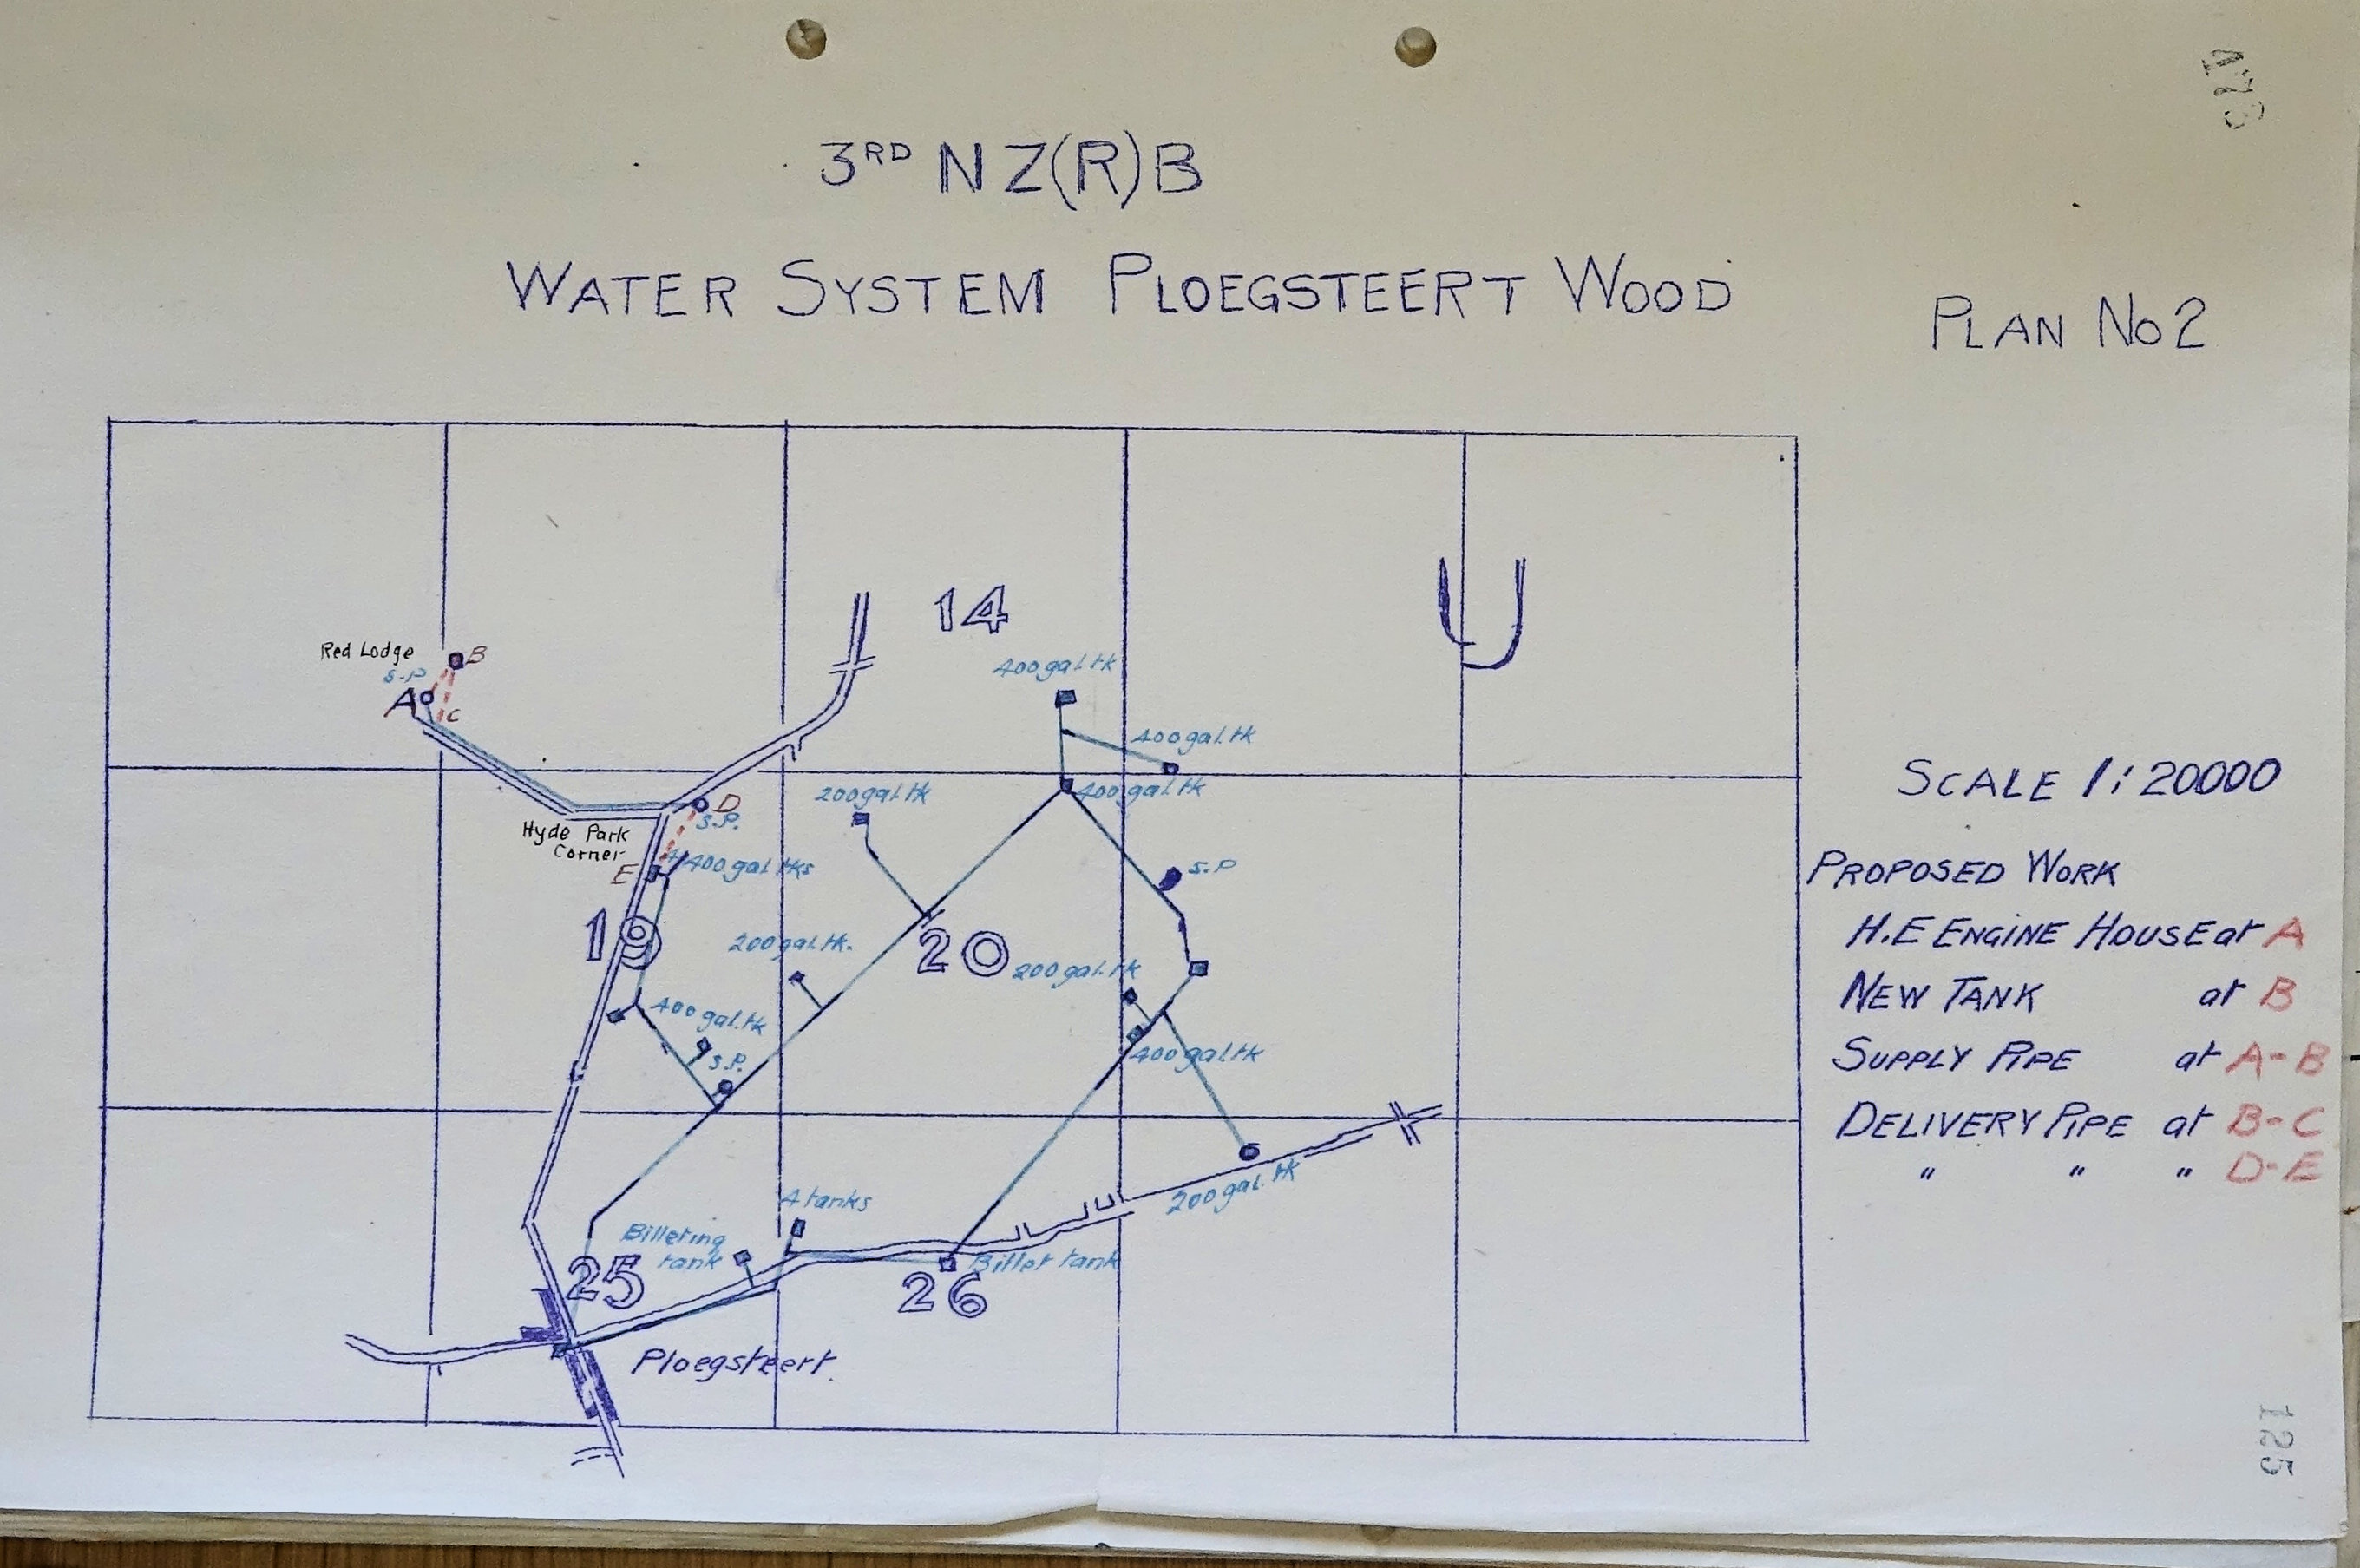 173
3RD NZ(R)B
WATER SYSTEM PLOEGSTEERT WOOD
PLAN No 2
14
U
Red Lodge
B
S.P
A
C
400gal.tk
400gal.tk
400gal.tk
200gal.tk
D
S.P.
Hyde Park
Corner
E
400gal.tks
S.P
19
200gal.tk.
20
200gal.tk
400gal.tk
S.P.
400gal.tk
200gal.tk
4 tanks
Billeting
tank
Billet tank
25
26
Ploegsteert.
SCALE 1:20000
PROPOSED WORK
H.E ENGINE HOUSE at A
NEW TANK at B
SUPPLY PIPE at A-B
DELIVERY PIPE at B-C
" " " D-E
125